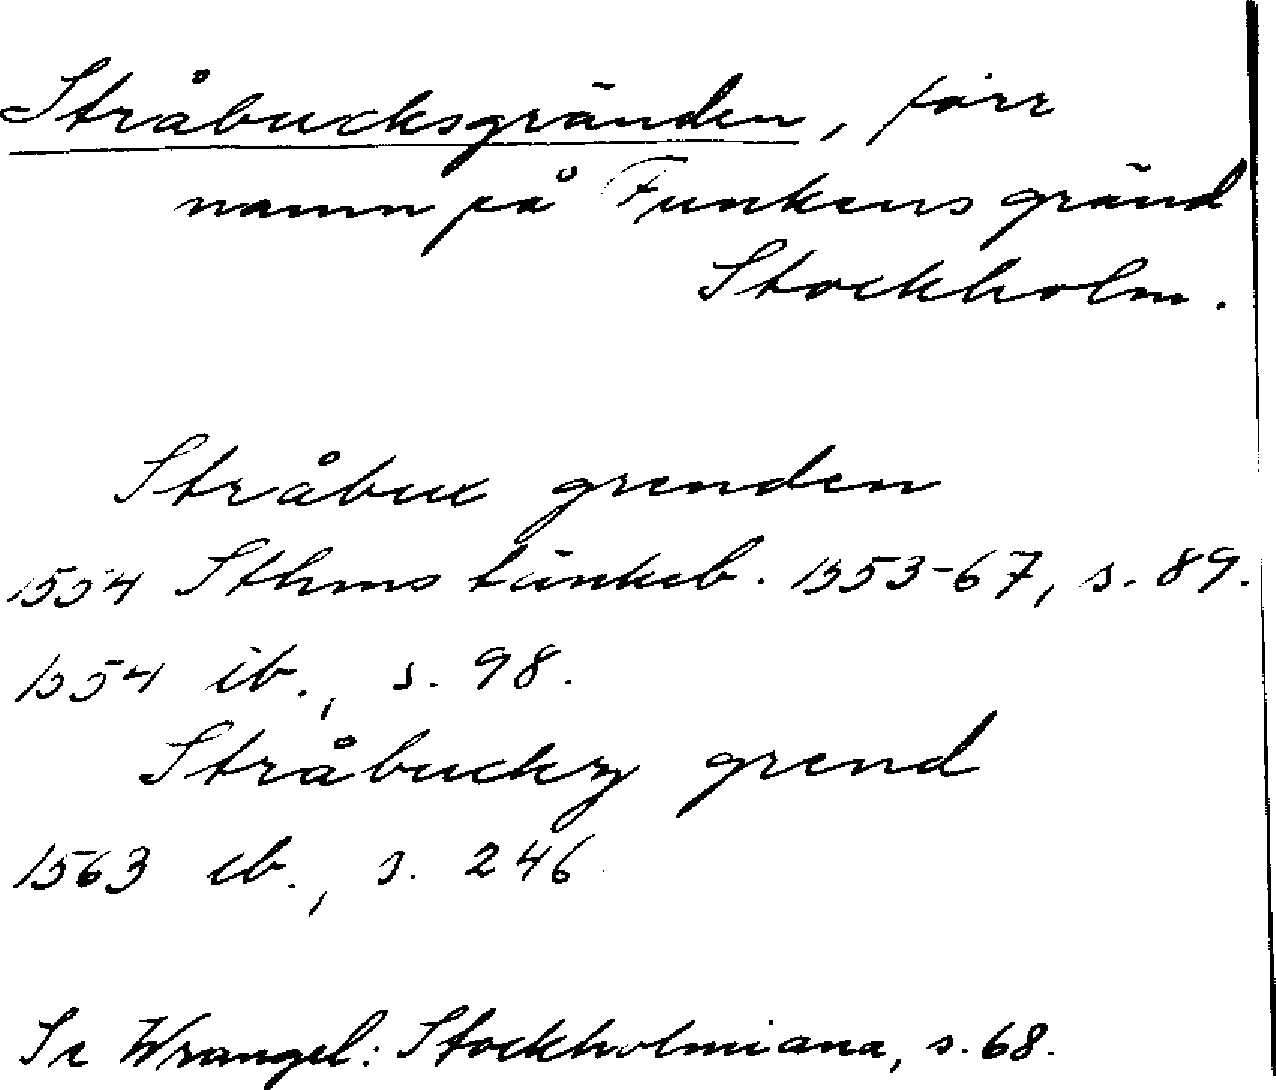 Stråbucksgränden, förr
namn på Funkens gränd
Stockholm.
Stråbux grenden
1554 Sthms tänkeb. 1553-67, s. 89.
1554 ib., s. 98.
Stråbuckz grend
1563 ib., s. 246
Se Wrangel: Stockholmiana, s. 68.